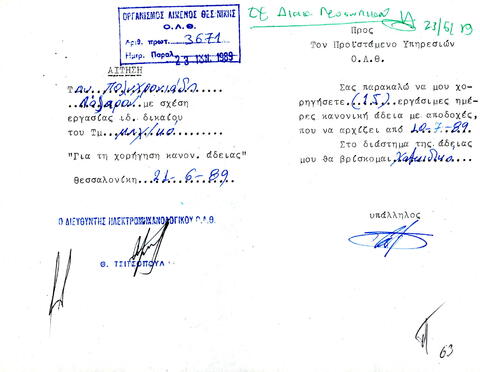 ΟΡΓΑΝΙΣΜΟΣ ΛΙΜΕΝΟΣ ΘΕΣ/ΝΙΚΗΣ
Ο.Λ.Θ.
Αριθ. πρωτ. 3671
Ημερ. Παραλ. 23 ΙΟΥΝ. 1989
ΑΙΤΗΣΗ
Του Πολυχρονιάδη
Λάζαρου με σχέση
εργασίας ιδ. δικαίου
του Τμ.
"Για τη χορήγηση κανον. άδειας"
Θεσσαλονίκη 21-6-89
Ο ΔΙΕΥΘΥΝΤΗΣ ΗΛΕΚΤΡΟΜΗΧΑΝΟΛΟΓΙΚΟΥ Ο.Λ.Θ.
Θ. ΤΣΙΤΣΟΠΟΥΛ
23/6/89
Προς
Τον Προϊστάμενο Υπηρεσιών
Ο.Λ.Θ.
Σας παρακαλώ να μου χο-
ρηγήσετε (15) εργάσιμες ημέ-
ρες κανονική άδεια με αποδοχές,
που να αρχίζει από -7-89.
Στο διάστημα της άδειας
μου θα βρίσκομαι Χαλκιδική
υπάλληλος
63